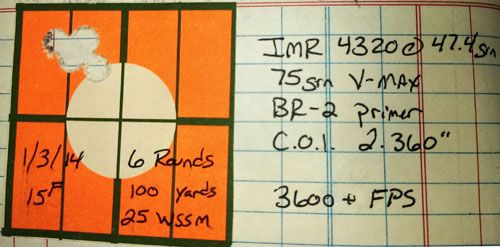 1/3/14 6 Rounds
15F 100 yards
25 WSSM
IMR 4320 @ 47.4 grn
75 grn V-MAX
BR-2 primer
C.O.l. 2.360"
3600 + FPS